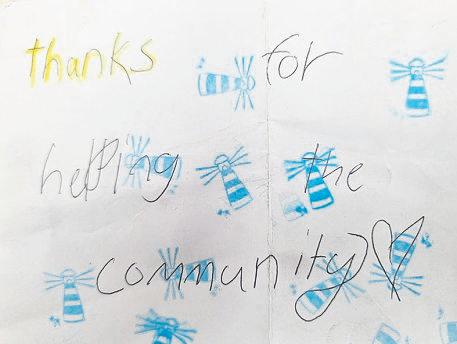 thanks for
helping the
community